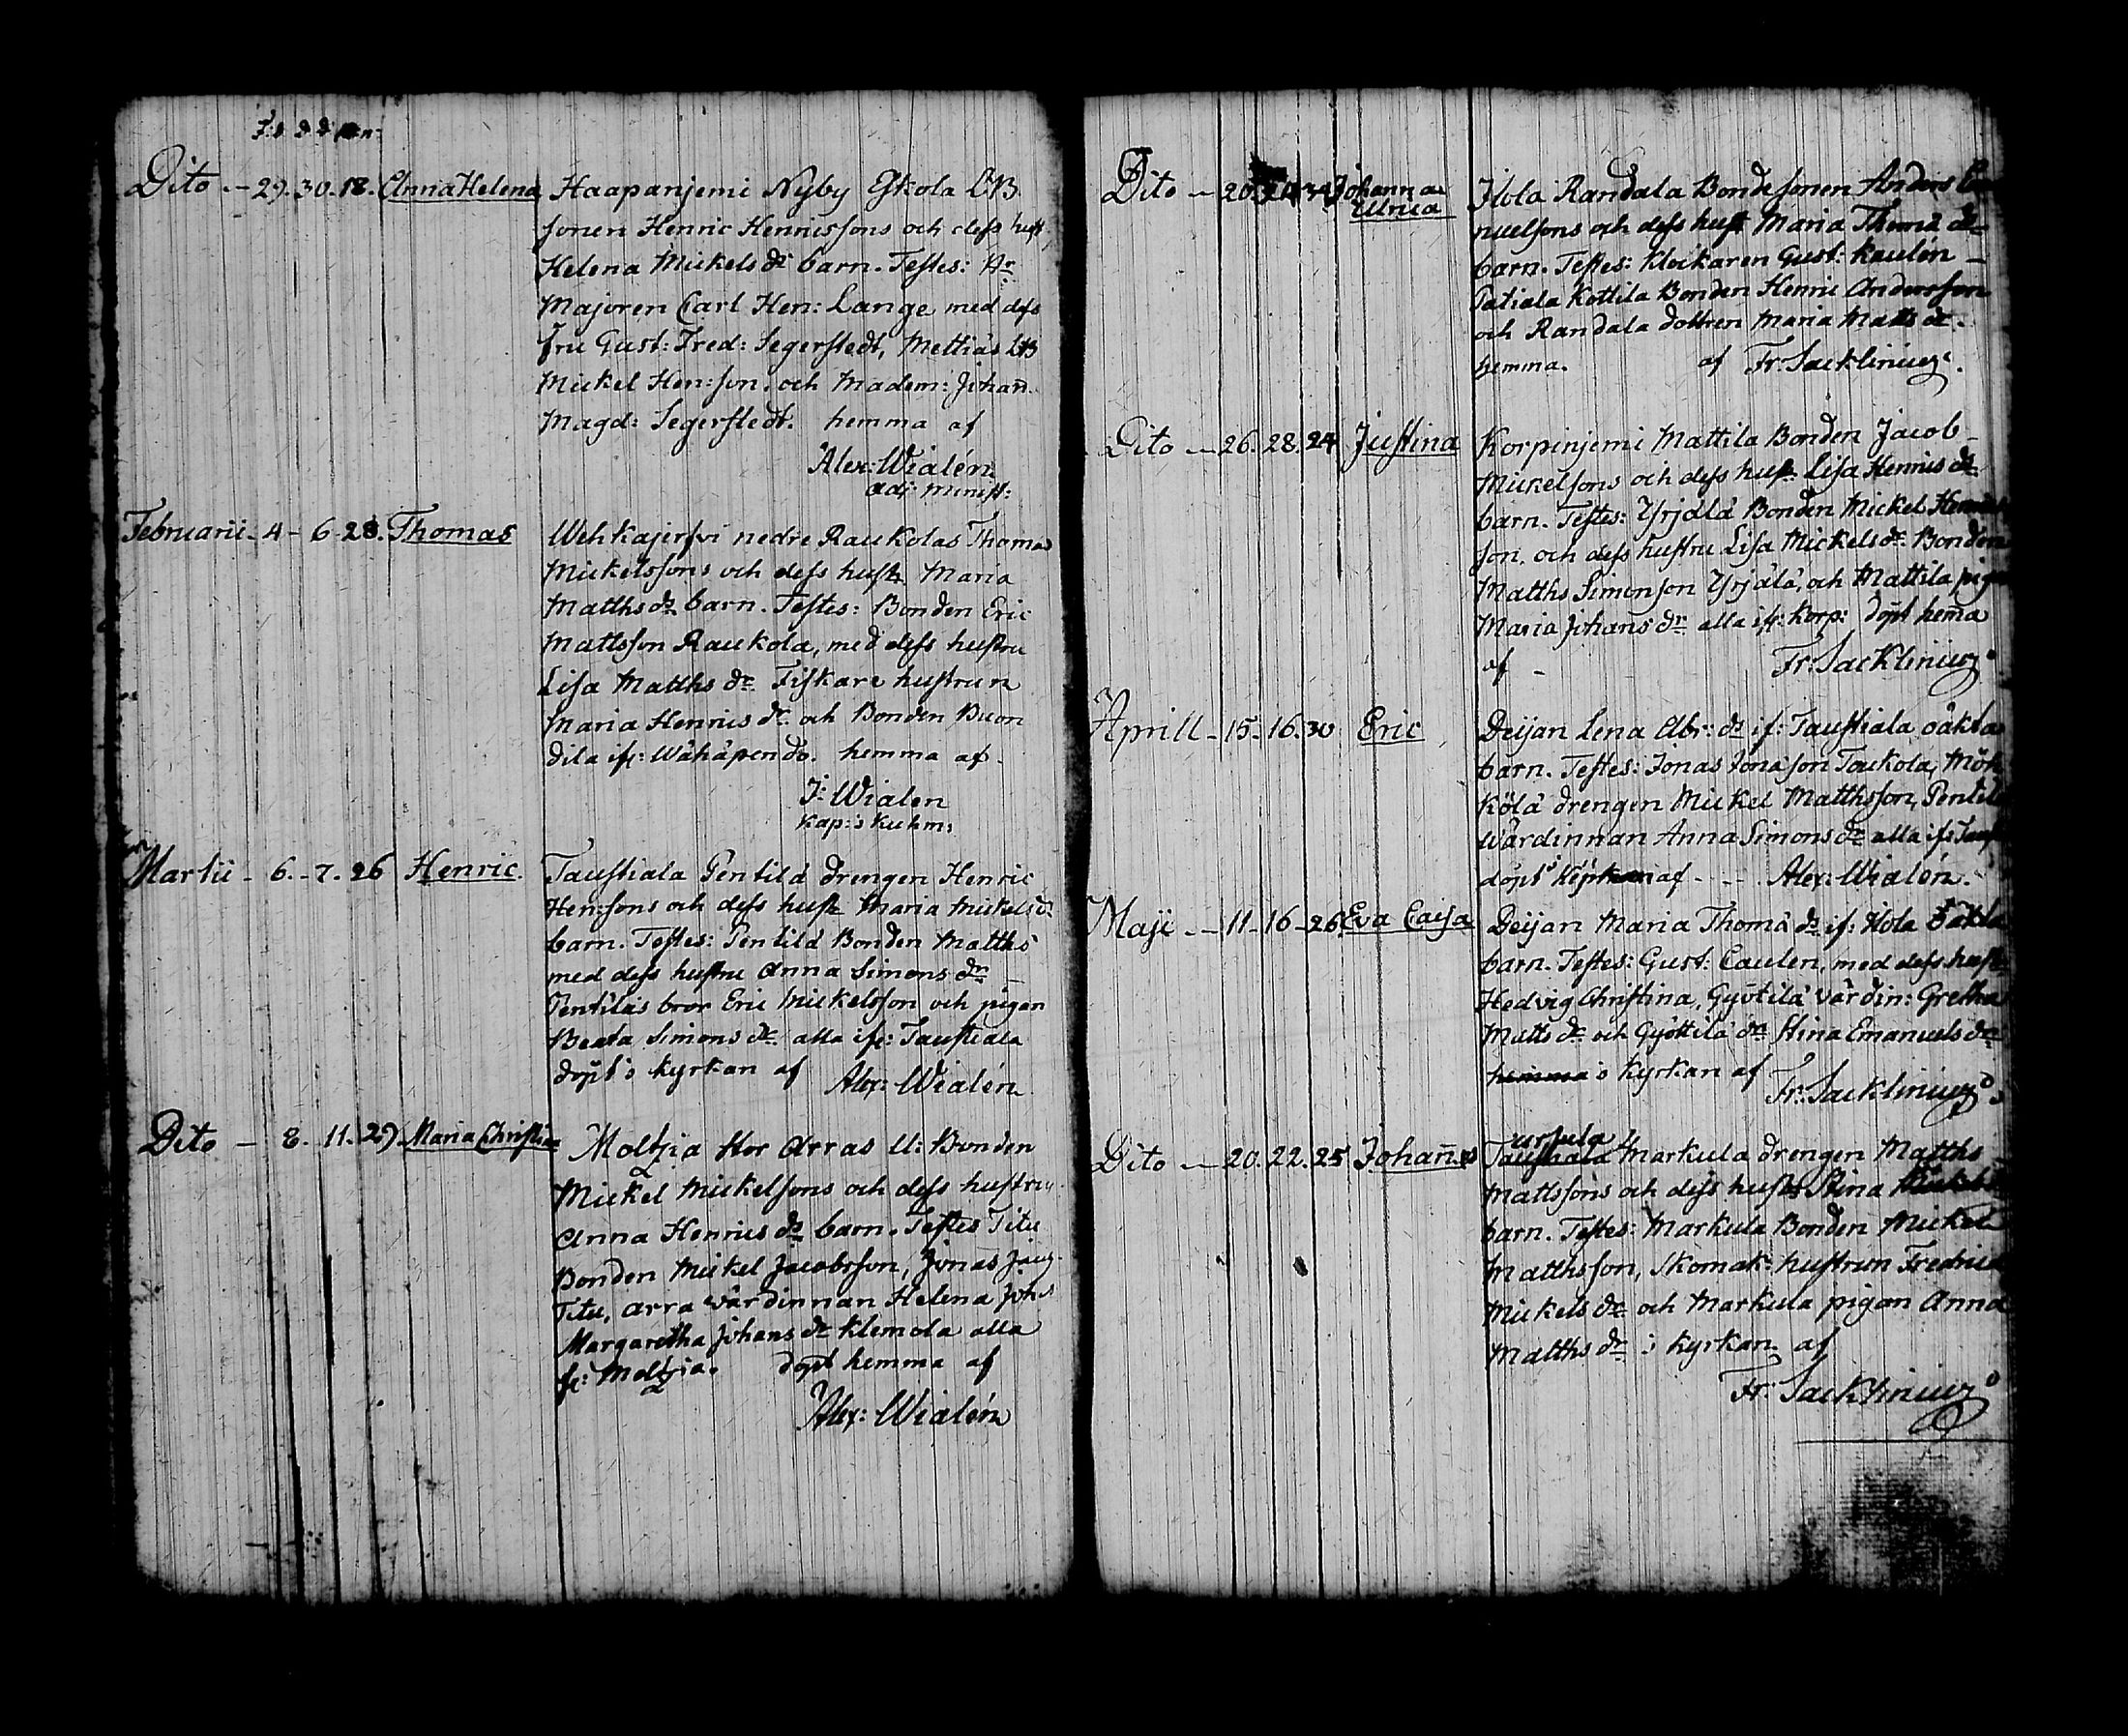 Dito — 29. 30. 18. Anna Helena Haapanjemi Nyby Eskola LB
sonen Henric Henricssons och dess hust.
Helena Mickels dr barn. Testes: Hr
Majoren Carl Hen: Lange med dess
fru Gust: Fred: Segerstedt, Mettiäs LB
Mickel Hen:son. och Madem: Johan.
Magd: Segerstedt. hemma af
Alex: Wialén
adj: minist:
Februarii - 4 - 6 - 28. Thomas Wehkajerfvi nedre Raukolas Thomas
Mickelssons och dess hust. Maria
Matths dr barn. Testes: Bonden Eric
Mattsson Raukola, med dess hustru
Lisa Matths dr Fiskare hustrun
Maria Henrics dr och Bonden
dila ifr: Wähäpendo. hemma af
J: Wialen
Kap: i Kuhm:
Martii - 6. - 7. 26 Henric. Taustiala Pentilä drengen Henric
Hen:sons och dess hust. Maria Mickels dr
barn. Testes: Pentilä Bonden Matths
med dess hustru Anna Simons dr
Pentiläs bror Eric Mickelsson och pigan
Beata Simons dr alla ifr: Taustiala
döpt i kyrkan af Alex: Wialén
Dito — 8. 11. 29 Maria Christina Moltzia Hor Arras U: Bonden
Mickel Mickelsons och dess hustru
Anna Henrics dr barn. Testes Titu
Bonden Mickel Jacobsson, Jonas
Titu, Arra värdinnan Helena Joh:
Margaretha Johans dr Klemola alla
fr: Moltzia. döpt hemma af
Alex: Wialén
Dito — 20. 24 34 Johanna
Ulrica Ilola Randala Bondesonen Anders
nuelsons och dess hust Maria Thomæ dr
barn. Testes: Klockaren Gust: Kaulén —
Patiala Kottila Bonden Henric Andersson
och Randala dottren Maria Matts dr.
hemma. af Fr: Sacklinius.
Dito — 26. 28. 24 Justina Korpinjemi Mattila Bonden Jacob
Mickelsons och dess hust: Lisa Henrics dr
barn. Testes: Yrjälä Bonden Mickel
son. och dess hustru Lisa Mickels dr Bonden
Matths Simonson Yrjälä, och Mattila pigan
Maria Johans dr alla ifr: Korp: döpt hemma
af - Fr: Sacklinius
Aprill - 15. 16. 30 Eric Deijan Lena Abr: dr if: Taustiala oäkta
barn. Testes: Jonas Jonason Toukola, Möh
kölä drengen Mickel Matthsson, Pentilä
wärdinnan Anna Simons dr alla if: Taust
döpt af - - - Alex: Wialén.
Maji — 11 - 16 - 26. Eva Caisa Deijan Maria Thomæ dr if: Ilola oäkta
barn. Testes: Gust: Caulen, med dess hust
Hedvig Christina, Gyötilä värdin: Gretha
Matts dr och Gyöttilä dr Stina Emanuels dr
hemma i kyrkan af Fr: Sacklinius
Dito — 20. 22. 25 Johannes ursula
Taustiala Markula drengen Matths
Mattssons och dess hustr Stina
barn. Testes: Markula Bonden Mickel
Matthsson, Skomak: hustrun Fredrica
Mickels dr och Markula pigan Anna
Matths dr i kyrkan af
Fr: Sacklinius